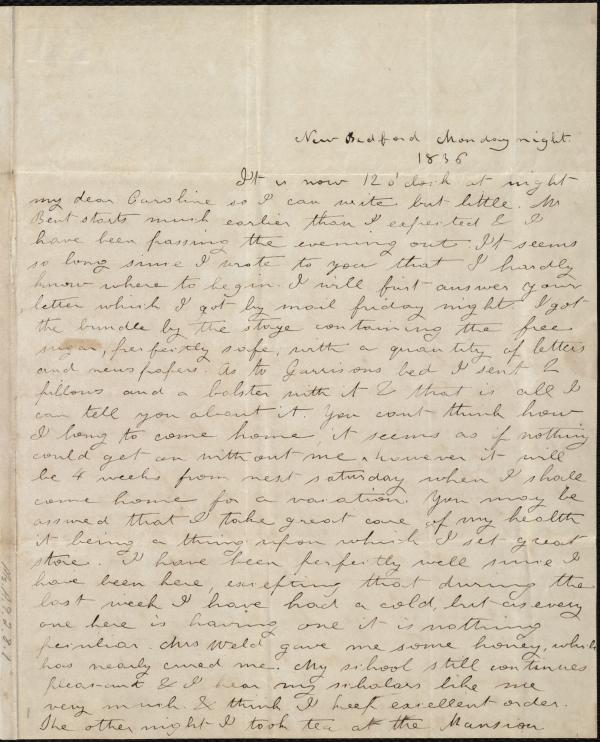 New Bedford Monday night.
1836
It is now 12 o'clock at night
my dear Caroline so I can write but little. Mr
Bent starts much earlier than I expected & I
have been passing the evening out. It seems
so long since I wrote to you that I hardly
know where to begin. I will first answer your
letter which I got by mail friday night. I got
the bundle by the stage containing the free
sugar, perfectly safe, with a quantity of letters
and newspapers. As to Garrisons bed I sent 2
pillows and a bolster with it & that is all I
can tell you about it. You cant think how
I long to come home, it seems as if nothing
could get on without me. however it will
be 4 weeks from next saturday when I shall
come home for a vacation. You may be
assured that I take great care of my health
it being a thing upon which I set great
store. I have been perfectly well since I
have been here, excepting that during the
last week I have had a cold, but as every
one here is having one it is nothing
peculiar. Mrs Weld gave me some honey, which
has nearly cured me. My school still continues
pleasant & I hear my scholars like me
very much. & think I keep excellent order.
The other night I took tea at the Mansion